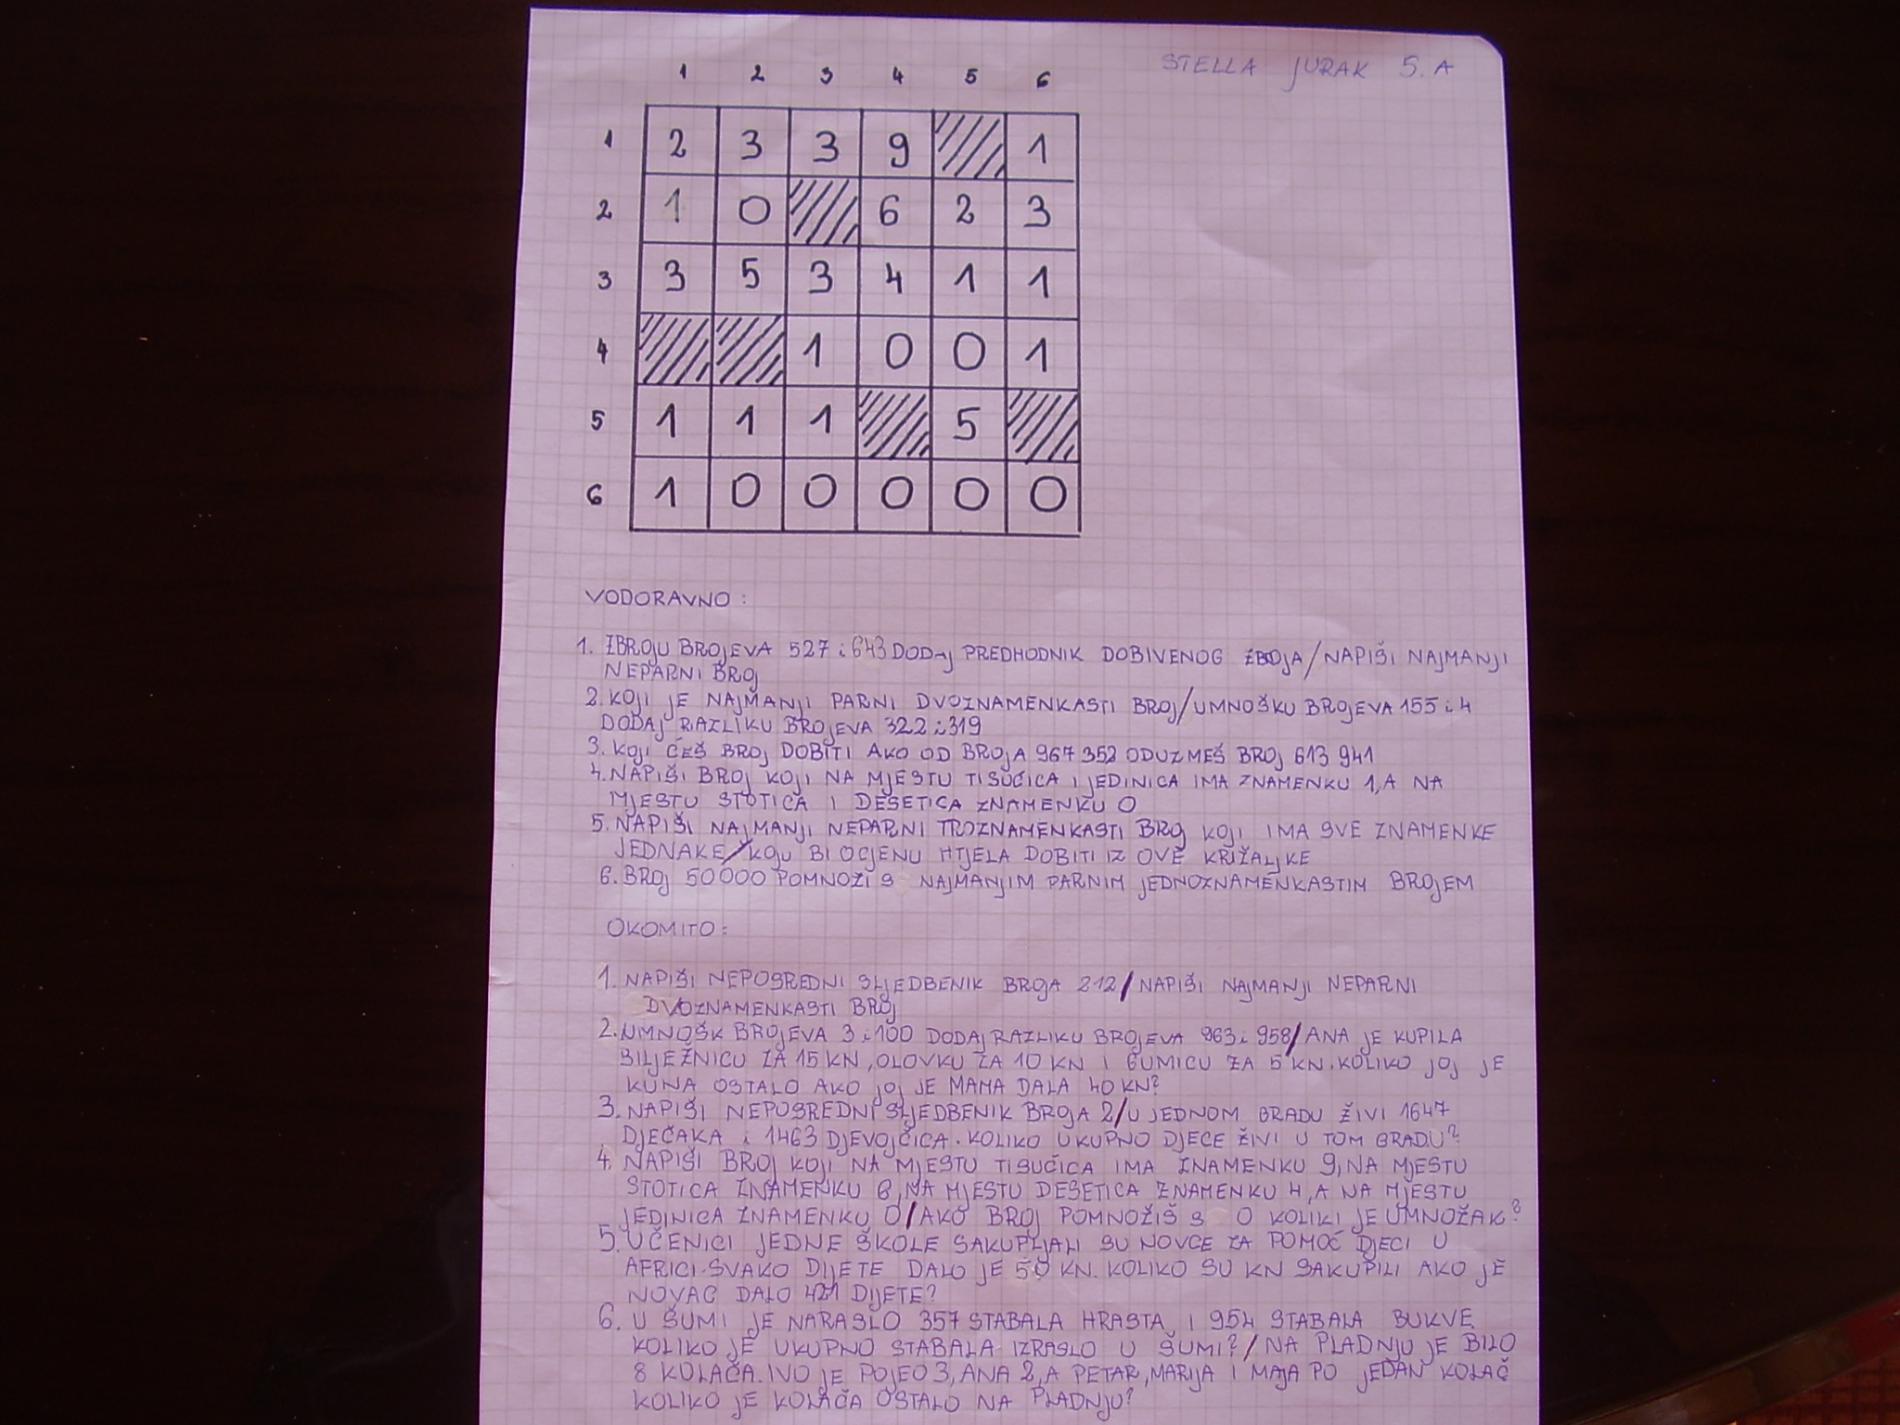 STELLA JURAK 5. A
1 2 3 4 5 6
1 2 3 3 9 1
2 1 0 6 2 3
3 3 5 3 4 1 1
4 1 0 0 1
5 1 1 1 5
6 1 0 0 0 0 0
VODORAVNO:
1. ZBROJU BROJEVA 527 i 643 DODAJ PREDHODNIK DOBIVENOG ZBROJA/NAPIŠI NAJMANJI
NEPARNI BROJ
2. KOJI JE NAJMANJI PARNI DVOZNAMENKASTI BROJ/UMNOŠKU BROJEVA 155 i 4
DODAJ RAZLIKU BROJEVA 322 i 319
3. KOJI ĆEŠ BROJ DOBITI AKO OD BROJA 967 352 ODUZMEŠ BROJ 613 941
4. NAPIŠI BROJ KOJI NA MJESTU TISUĆICA I JEDINICA IMA ZNAMENKU 1, A NA
MJESTU STOTICA I DESETICA ZNAMENKU 0
5. NAPIŠI NAJMANJI NEPARNI TROZNAMENKASTI BROJ KOJI IMA SVE ZNAMENKE
JEDNAKE/KOJU BI OCJENU HTJELA DOBITI IZ OVE KRIŽALJKE
6. BROJ 50 000 POMNOŽI S NAJMANJIM PARNIM JEDNOZNAMENKASTIM BROJEM
OKOMITO:
1. NAPIŠI NEPOSREDNI SLJEDBENIK BROJA 212/NAPIŠI NAJMANJI NEPARNI
DVOZNAMENKASTI BROJ
2. UMNOŠK BROJEVA 3 i 100 DODAJ RAZLIKU BROJEVA 963 i 958/ANA JE KUPILA
BILJEŽNICU ZA 15 KN, OLOVKU ZA 10 KN I GUMICU ZA 5 KN. KOLIKO JOJ JE
KUNA OSTALO AKO JOJ JE MAMA DALA 40 KN?
3. NAPIŠI NEPOSREDNI SLJEDBENIK BROJA 2/U JEDNOM GRADU ŽIVI 1647
DJEČAKA i 1463 DJEVOJČICA. KOLIKO UKUPNO DJECE ŽIVI U TOM GRADU?
4. NAPIŠI BROJ KOJI NA MJESTU TISUĆICA IMA ZNAMENKU 9, NA MJESTU
STOTICA ZNAMENKU 6, NA MJESTU DESETICA ZNAMENKU 4, A NA MJESTU
JEDINICA ZNAMENKU 0/AKO BROJ POMNOŽIŠ S 0 KOLIKI JE UMNOŽAK?
5. UČENICI JEDNE ŠKOLE SAKUPLJALI SU NOVCE ZA POMOĆ DJECI U
AFRICI. SVAKO DIJETE DALO JE 50 KN. KOLIKO SU KN SAKUPILI AKO JE
NOVAC DALO DIJETE?
6. U ŠUMI JE NARASLO 357 STABALA HRASTA I 954 STABALA BUKVE.
KOLIKO JE UKUPNO STABALA IZRASLO U ŠUMI?/NA PLADNJU JE BILO
8 KOLAČA. IVO JE POJEO 3, ANA 2, A PETAR, MARIJA I MAJA PO JEDAN KOLAČ
KOLIKO JE KOLAČA OSTALO NA PLADNJU?